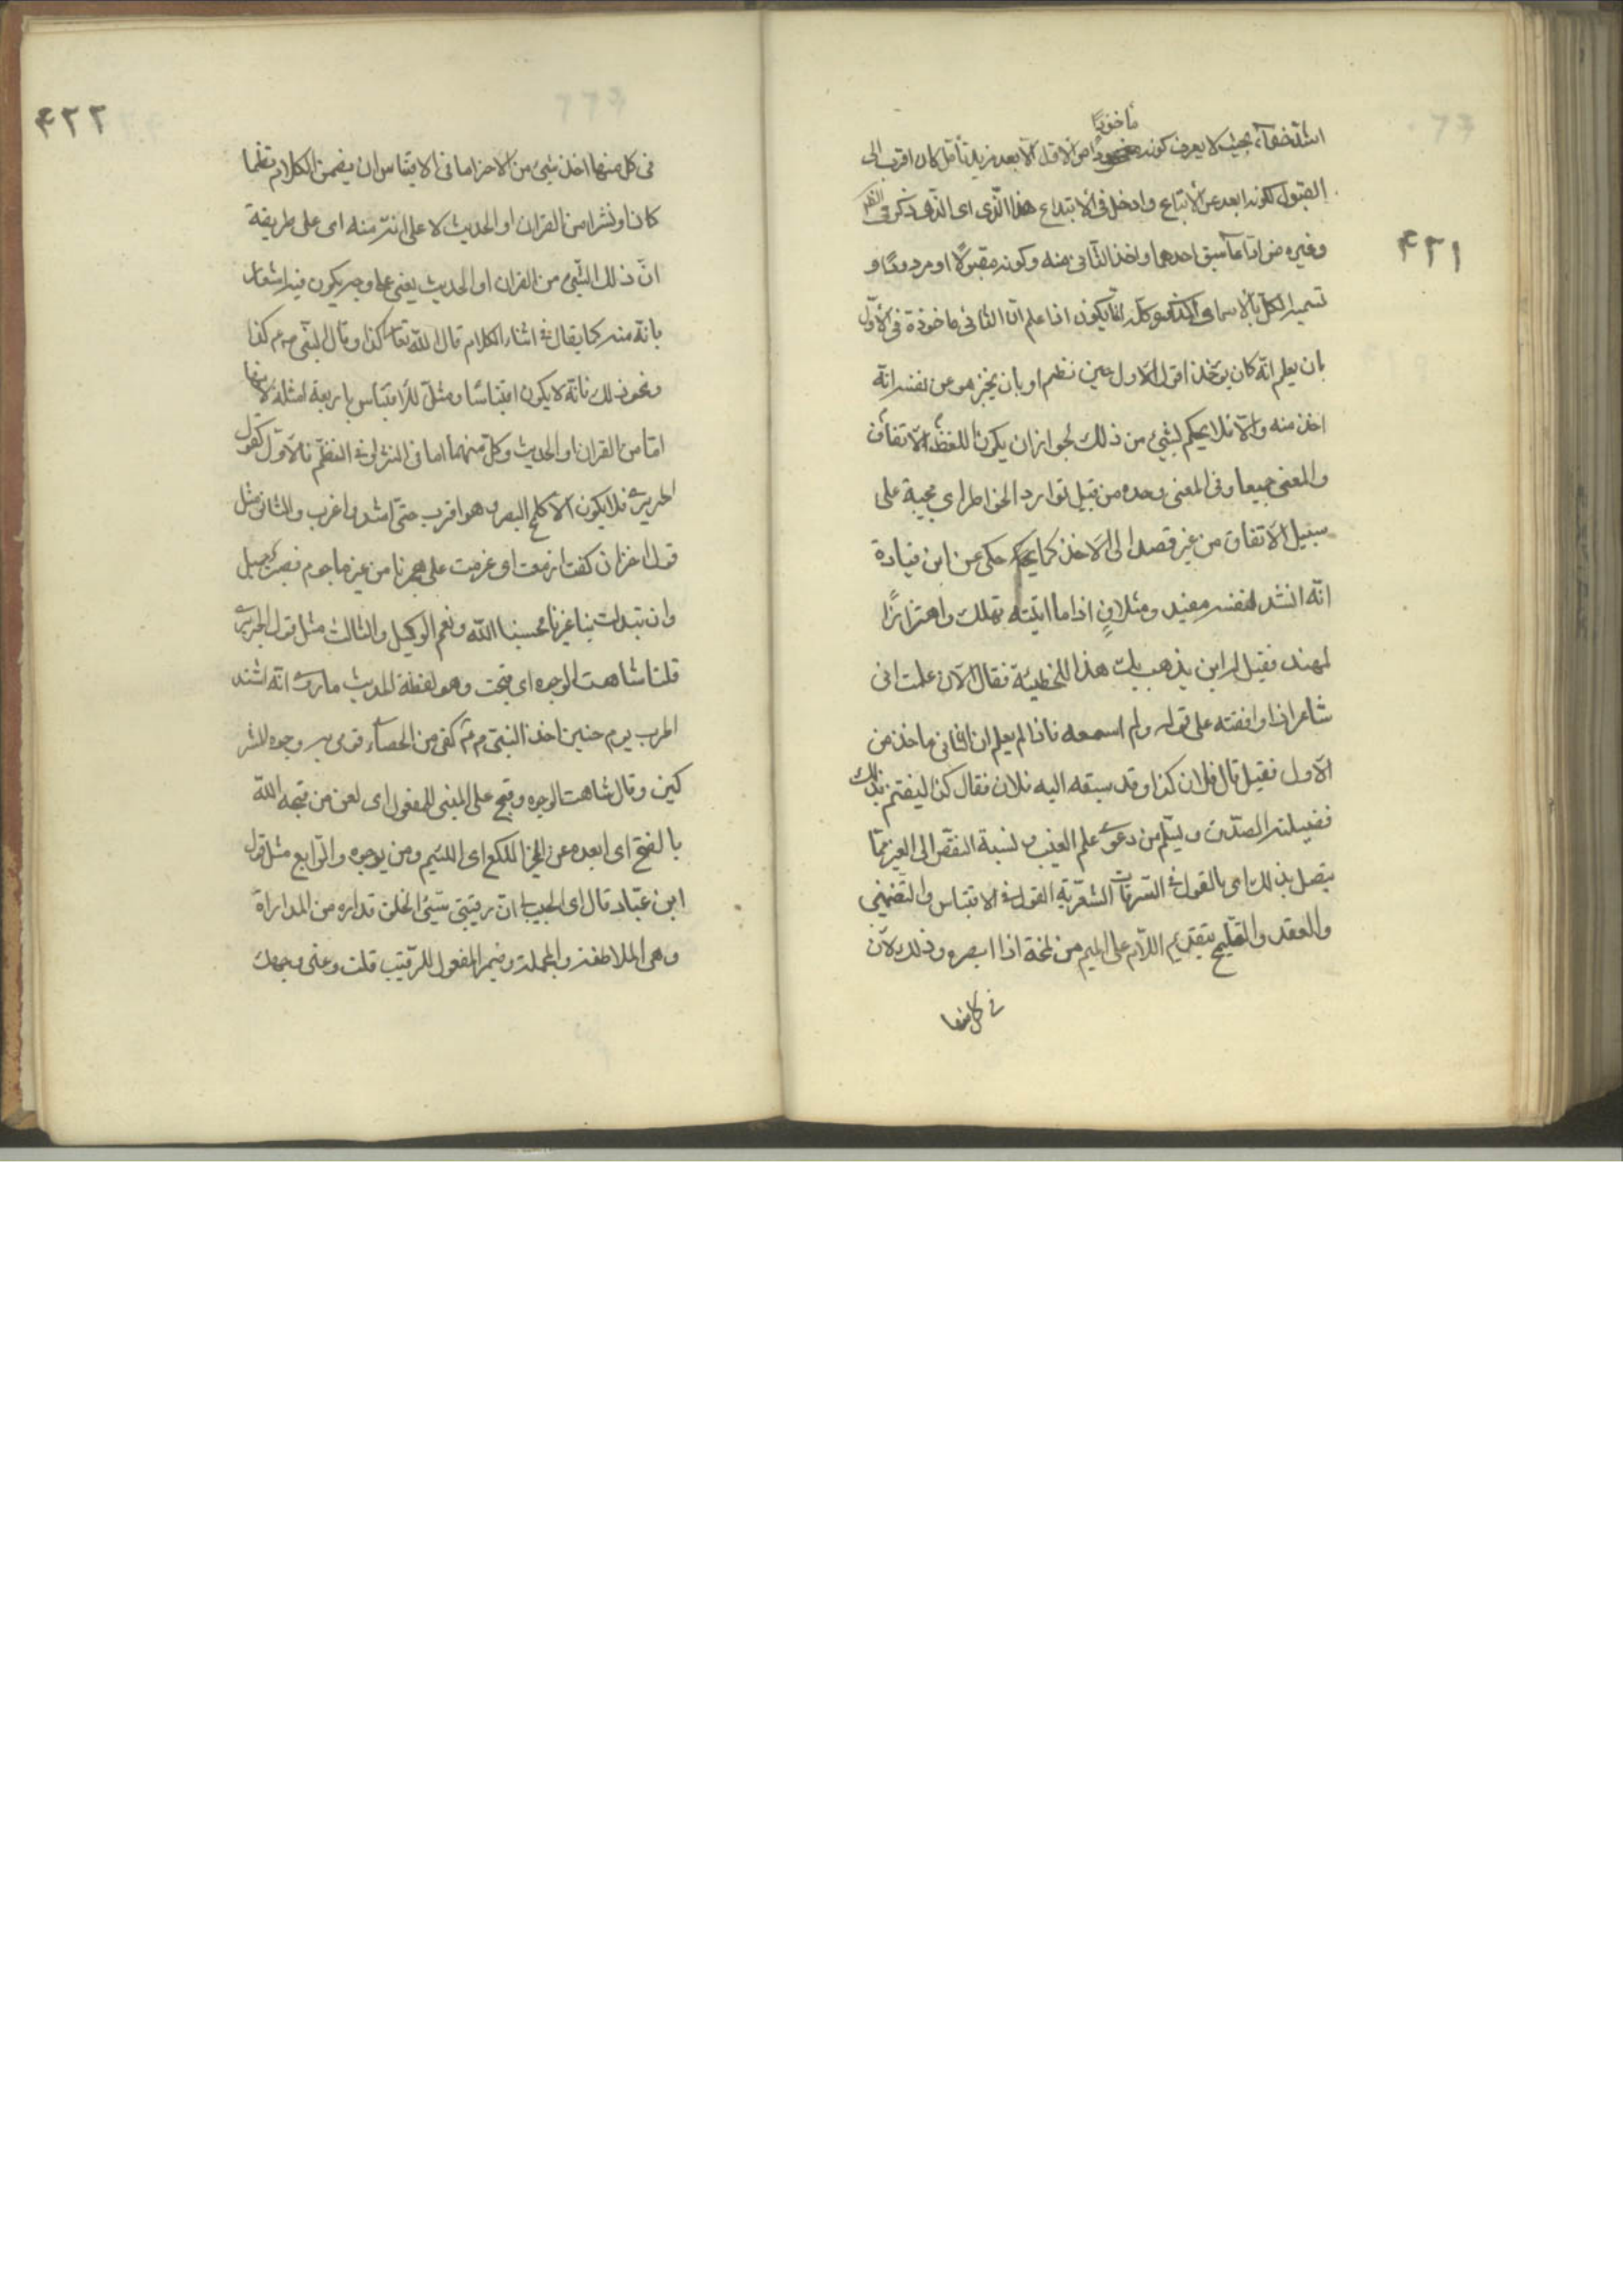 ٤٢١
مأخوذًا
اشد خفاء بحيث لا يعرف كونه من الاول الا بعد مزيد تأمل كان اقرب الى
القبول لكونه ابعد عن الاتباع وادخل فى الابتداع هذا الذى اى الذى ذكر فى الظ
وغيره من ادّعا سبق احدهما واخذ الثانى منه وكونه مقبولا او مردودا و
تسمية الكل بالاسامى المذكورة كله انما يكون اذا علم ان الثانى ماخوذة فى الاول
بان يعلم انه كان يؤخذ اقول الاول حين نظم او بان يخبر هو عن نفسه انه
اخذ منه والا فلا يحكم لشئ من ذلك لجواز ان يكون اللفظ الاتفاق
والمعنى جميعا وفى المعنى وحده من قبيل توارد الخواطر اى مجيئه على
سبيل الاتفاق من غير قصد الى الاخذ كما يحكى حكى عن ابن ميادة
انه انشد لنفسه مفيد ومتلاف اذا ما اتيته تهلل واهتز اهتزازا
لمهند فقيل له اين يذهب بك هذا للخطيئة فقال الان علمت انى
شاعر اذا وافقته على قوله ولم اسمعه فاذا لم يعلم ان الثانى ماخذ من
الاول فقيل قال فلان كذا وقد سبقه اليه فلان فقال كذا ليغتنم بذلك
فضيلته الصدق ويسلم من دعوى علم الغيب ونسبة النقص الى الغير مما
يتصل بذلك اى بالقول فى السرقات الشعرية القول فى الاقتباس والتضمين
والعقد والتلميح بتقديم اللام على الميم من لمحة اذا ابصره وذلك لان
فى كل منها
٤٢٢
فى كل منها اخذ شئ من الاخر اما فى الاقتباس ان يضمن الكلام نظما
كان او نثرا من القران او الحديث لا على انه منه اى على طريقة
انّ ذلك الشئ من القران او الحديث يعنى على وجه يكون فيه اشعار
بانه منه كما يقال فى اثناء الكلام قال الله تعا كذا وقال النبى ص م كذا
ونحو ذلك فانه لا يكون اقتباسا ومثل للاقتباس باربعة امثلة لانها
اما من القران او الحديث وكل منهما اما فى النثر او فى النظم فالاول كقول
الحريرى فلا يكون الا كلمح البصر وهو اقرب حتى انشد واغرب والثانى مثل
قول اخر ان كنت ازمعت اى عزمت على هجرنا من غير ما جرم فصبر جميل
وان تبدلت بنا غيرنا فحسبنا الله ونعم الوكيل والثالث مثل قول الحريرى
قلنا شاهت الوجوه اى قبحت وهو لفظة الحديث مارى انه اشتد
الحرب يوم حنين اخذ النبى م م كفى من الحصاء فرمى به وجوه المشر
كين وقال شاهت الوجوه وقبح على المبنى للمفعول اى لعن من قبحه الله
بالفتح اى ابعده عن الخير اللكع اى اللئيم ومن يرجوه والرابع مثل قول
ابن عباد قال اى الحبيب انّ رقيبى سيئ الخلق فداره من المداراة
وهى الملاطفة والمجاملة وضمير المفعول للرقيب قلت دعنى وجهك